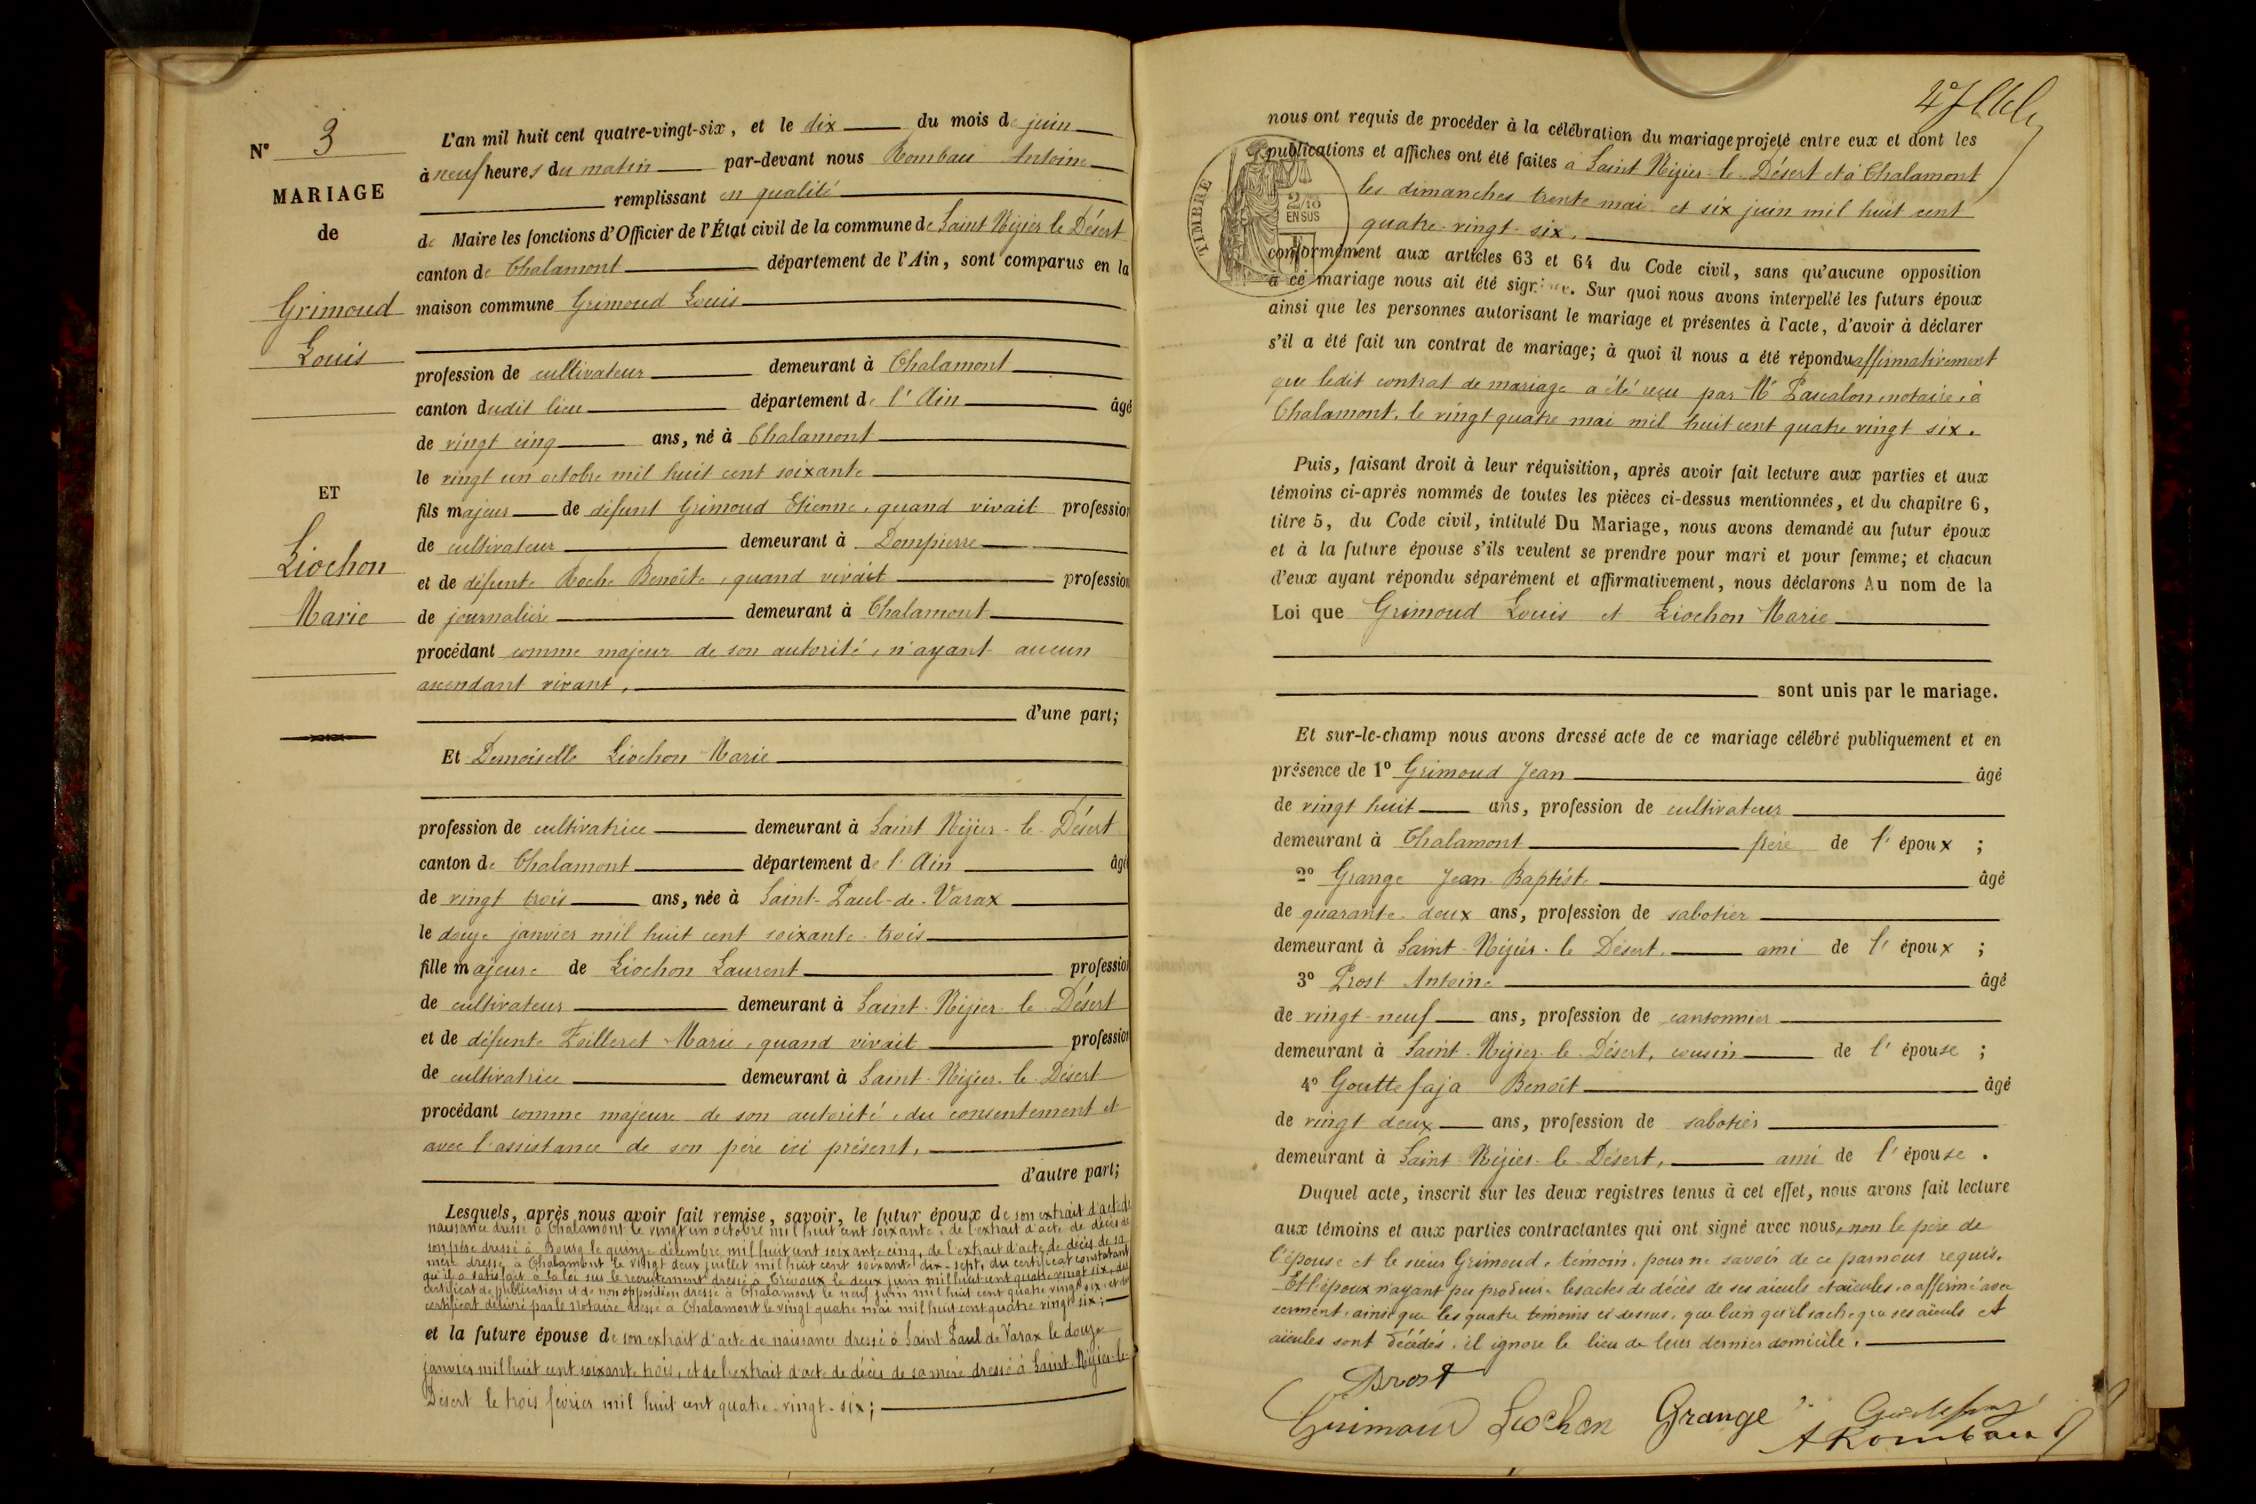 N° 3
MARIAGE
de
Grimoud
Louis
ET
Liochon
Marie
L'an mil huit cent quatre-vingt-six, et le dix du mois de juin
à neuf heures du matin par-devant nous Rombau Antoine
remplissant en qualité
de Maire les fonctions d'Officier de l'État civil de la commune de Saint Nizier le Désert
canton de Chalamont département de l'Ain, sont comparus en la
maison commune Grimoud Louis
profession de cultivateur demeurant à Chalamont
canton dudit lieu département de l'Ain âgé
de vingt cinq ans, né à Chalamont
le vingt un octobre mil huit cent soixante
fils majeur de défunt Grimoud Etienne, quand vivait profession
de cultivateur demeurant à Dompierre
et de défunte Roche Benoîte, quand vivait profession
de journalière demeurant à Chalamont
procédant comme majeur de son autorité, n'ayant aucun
ascendant vivant,
d'une part;
Et Demoiselle Liochon Marie
profession de cultivatrice demeurant à Saint Nizier-le-Désert
canton de Chalamont département de l'Ain âgé
de vingt trois ans, née à Saint-Paul-de-Varax
le douze janvier mil huit cent soixante-trois
fille majeure de Liochon Laurent profession
de cultivateur demeurant à Saint-Nizier-le-Désert
et de défunte Feilleret Marie, quand vivait profession
de cultivatrice demeurant à Saint-Nizier-le-Désert
procédant comme majeure de son autorité, du consentement et
avec l'assistance de son père ici présent,
d'autre part;
Lesquels, après nous avoir fait remise, savoir, le futur époux de son extrait d'acte de
naissance dressé à Chalamont le vingt un octobre mil huit cent soixante, de l'extrait d'acte de décès de
son père dressé à Bourg le quinze décembre mil huit cent soixante cinq, de l'extrait d'acte de décès de sa
mère dressé à Chalamont le vingt deux juillet mil huit cent soixante dix-sept, du certificat constatant
qu'il a satisfait à la loi sur le recrutement dressé à Trévoux le deux juin mil huit cent quatre vingt six, du
certificat de publication et de non opposition dressé à Chalamont le neuf juin mil huit cent quatre vingt six et du
certificat délivré par le notaire dressé à Chalamont le vingt quatre mai mil huit cent quatre vingt six;
et la future épouse de son extrait d'acte de naissance dressé à Saint Paul de Varax le douze
janvier mil huit cent soixante trois, et de l'extrait d'acte de décès de sa mère dressé à Saint-Nizier-le-
Désert le trois février mil huit cent quatre-vingt-six;
TIMBRE
2/10
EN SUS
nous ont requis de procéder à la célébration du mariage projeté entre eux et dont les
publications et affiches ont été faites à Saint Nizier-le-Désert et à Chalamont
les dimanches trente mai et six juin mil huit cent
quatre-vingt-six.
conformément aux articles 63 et 64 du Code civil, sans qu'aucune opposition
à ce mariage nous ait été signifiée. Sur quoi nous avons interpellé les futurs époux
ainsi que les personnes autorisant le mariage et présentes à l'acte, d'avoir à déclarer
s'il a été fait un contrat de mariage; à quoi il nous a été répondu affirmativement
que ledit contrat de mariage a été reçu par Me Pascalon, notaire, à
Chalamont, le vingt quatre mai mil huit cent quatre vingt six.
Puis, faisant droit à leur réquisition, après avoir fait lecture aux parties et aux
témoins ci-après nommés de toutes les pièces ci-dessus mentionnées, et du chapitre 6,
titre 5, du Code civil, intitulé Du Mariage, nous avons demandé au futur époux
et à la future épouse s'ils veulent se prendre pour mari et pour femme; et chacun
d'eux ayant répondu séparément et affirmativement, nous déclarons Au nom de la
Loi que Grimoud Louis et Liochon Marie
sont unis par le mariage.
Et sur-le-champ nous avons dressé acte de ce mariage célébré publiquement et en
présence de 1° Grimoud Jean âgé
de vingt huit ans, profession de cultivateur
demeurant à Chalamont frère de l'époux ;
2° Grange Jean-Baptiste âgé
de quarante-deux ans, profession de sabotier
demeurant à Saint-Nizier-le Désert, ami de l'époux ;
3° Prost Antoine âgé
de vingt-neuf ans, profession de cantonnier
demeurant à Saint-Nizier-le-Désert, cousin de l'épouse ;
4° Gouttefaja Benoît âgé
de vingt deux ans, profession de sabotier
demeurant à Saint Nizier-le-Désert, ami de l'épouse.
Duquel acte, inscrit sur les deux registres tenus à cet effet, nous avons fait lecture
aux témoins et aux parties contractantes qui ont signé avec nous, non le père de
l'épouse et le sieur Grimoud, témoin, pour ne savoir de ce par nous requis.
Et l'époux n'ayant pu produire les actes de décès de ses aïeuls et aïeules, a affirmé avec
serment, ainsi que les quatre témoins ci-dessus, que bien qu'il sache que ses aïeuls et
aïeules sont décédés, il ignore le lieu de leur dernier domicile.
Prost
Grimoud Liochon Grange
A Rombau